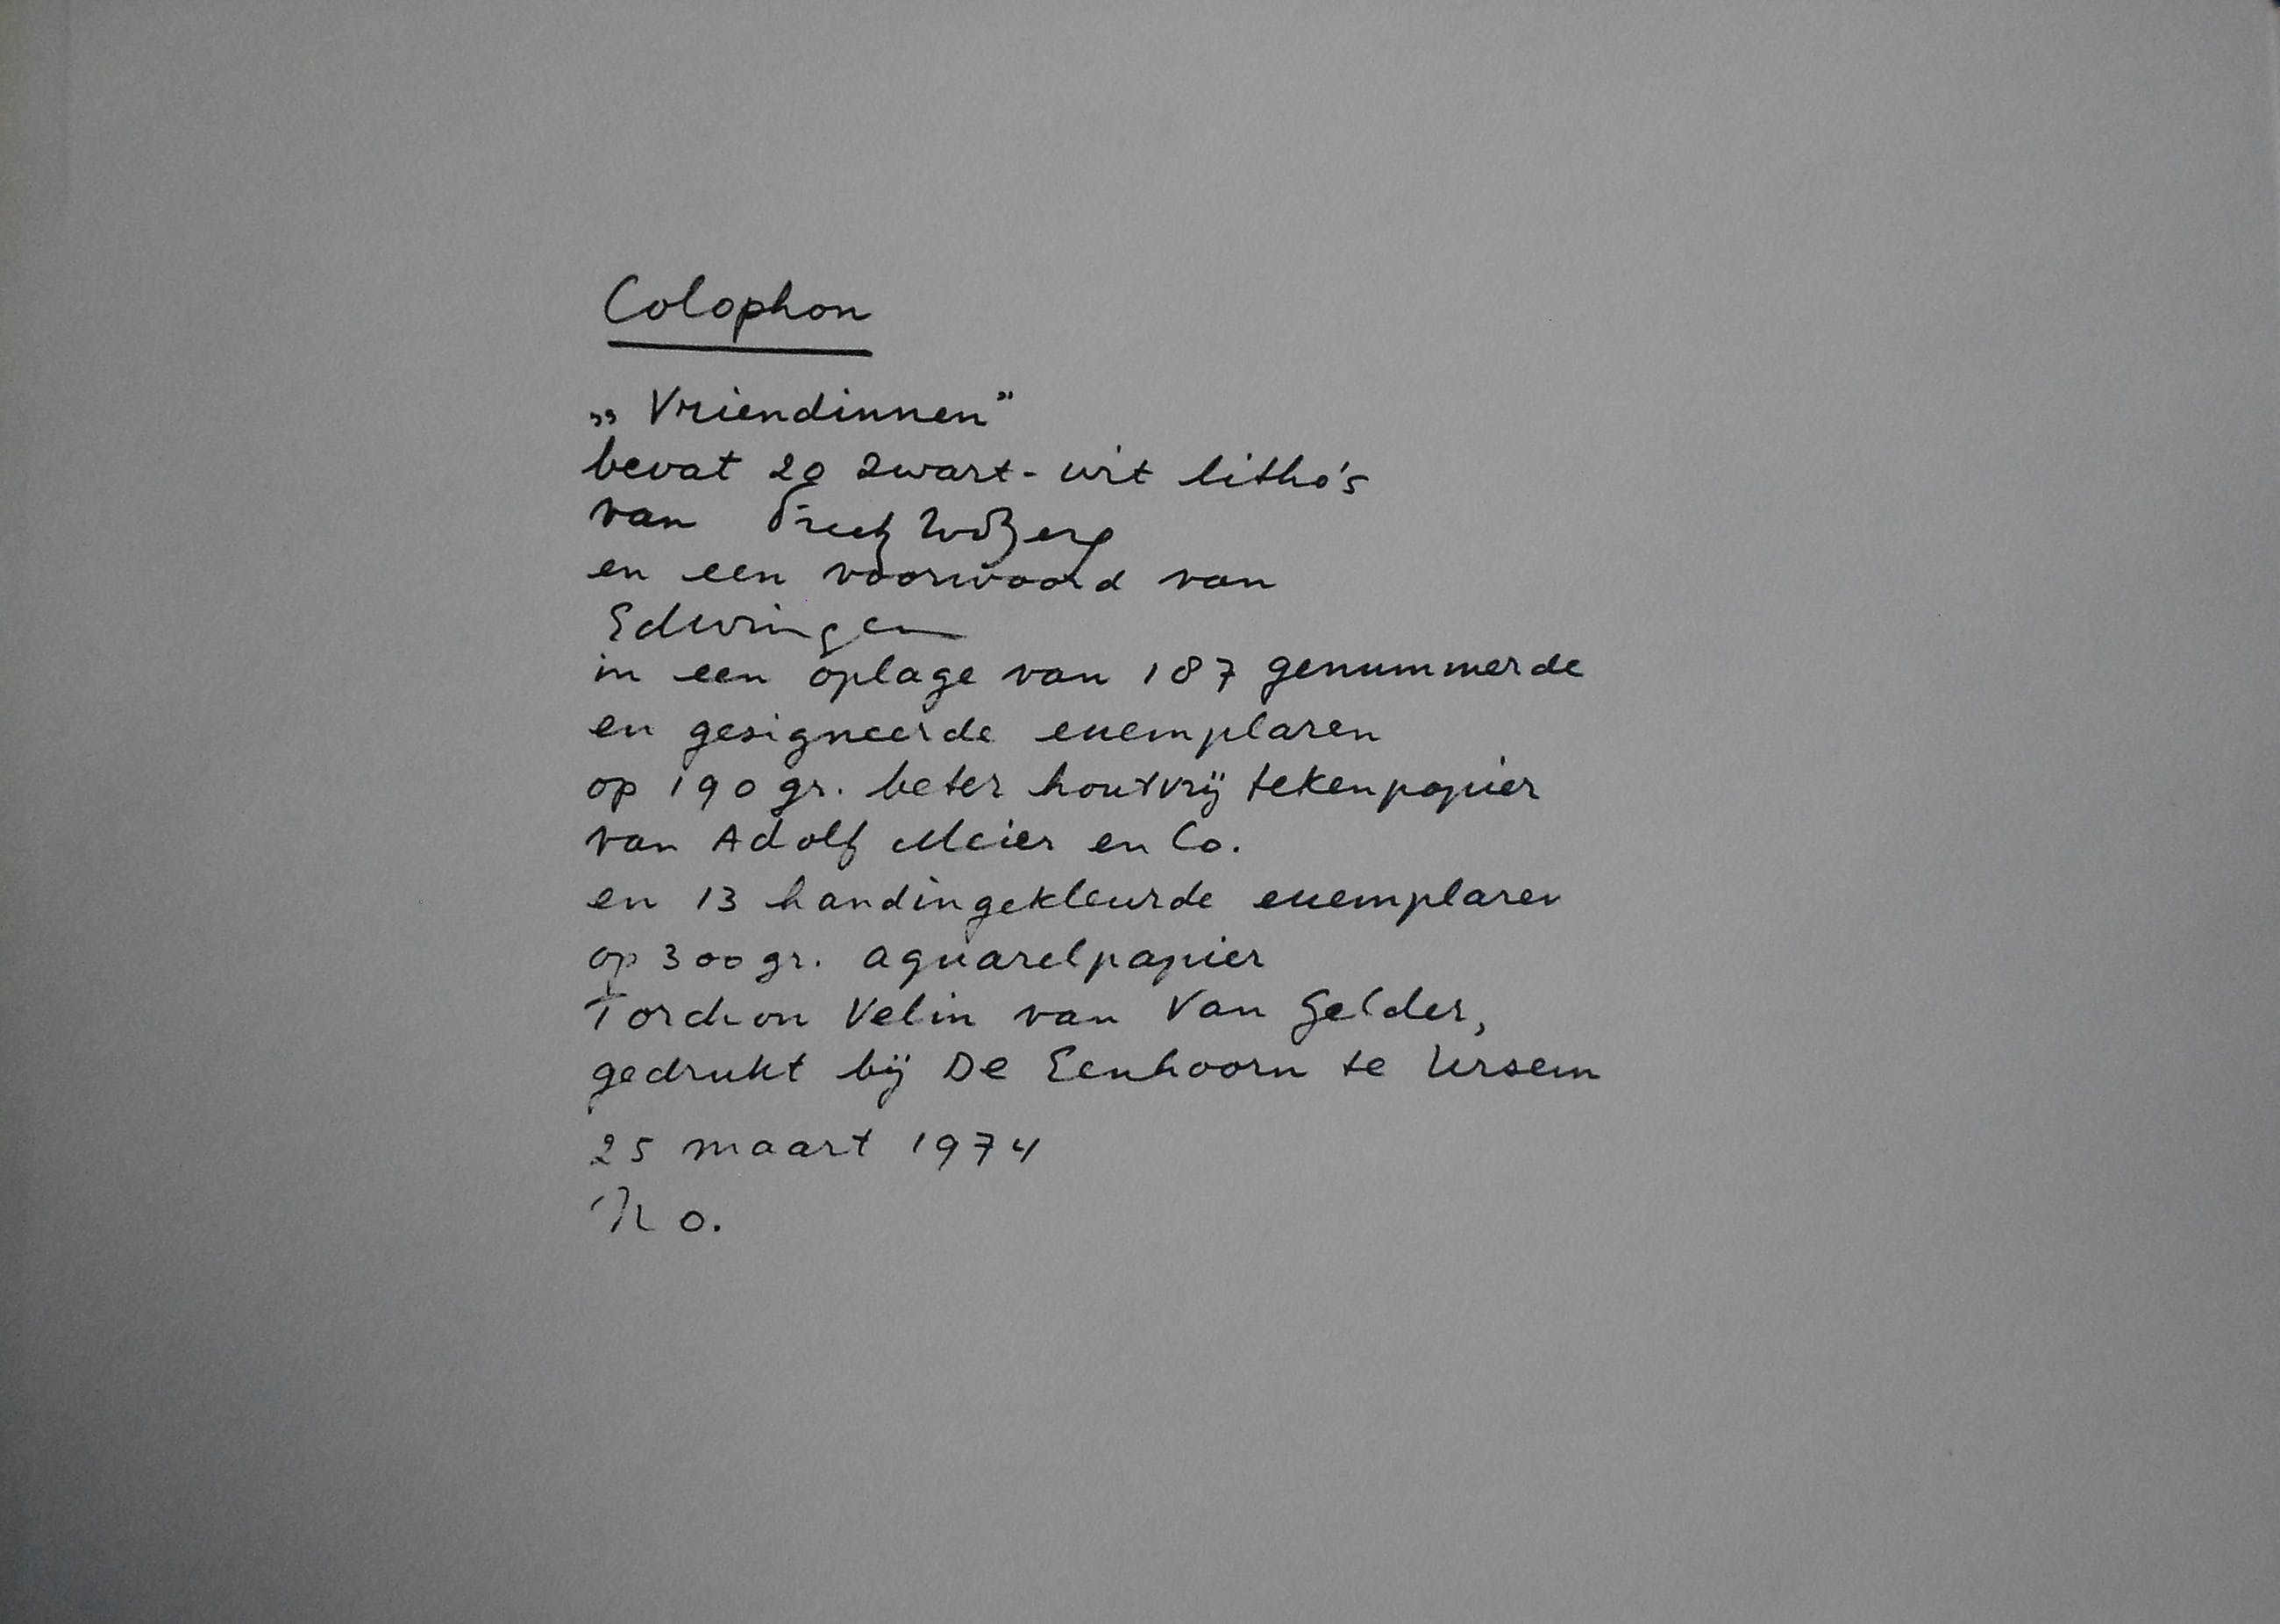 Colophon
„Vriendinnen”
bevat 20 zwart-wit litho's
van
en een voorwoord van
Edwin
in een oplage van 187 genummerde
en gesigneerde exemplaren
op 190 gr. beter houtvrij tekenpapier
van Adolf Meier en Co.
en 13 handingekleurde exemplaren
op 300 gr. aquarelpapier
Torchon Velin van Van Gelder,
gedrukt bij De Eenhoorn te Ursem
25 maart 1974
No.